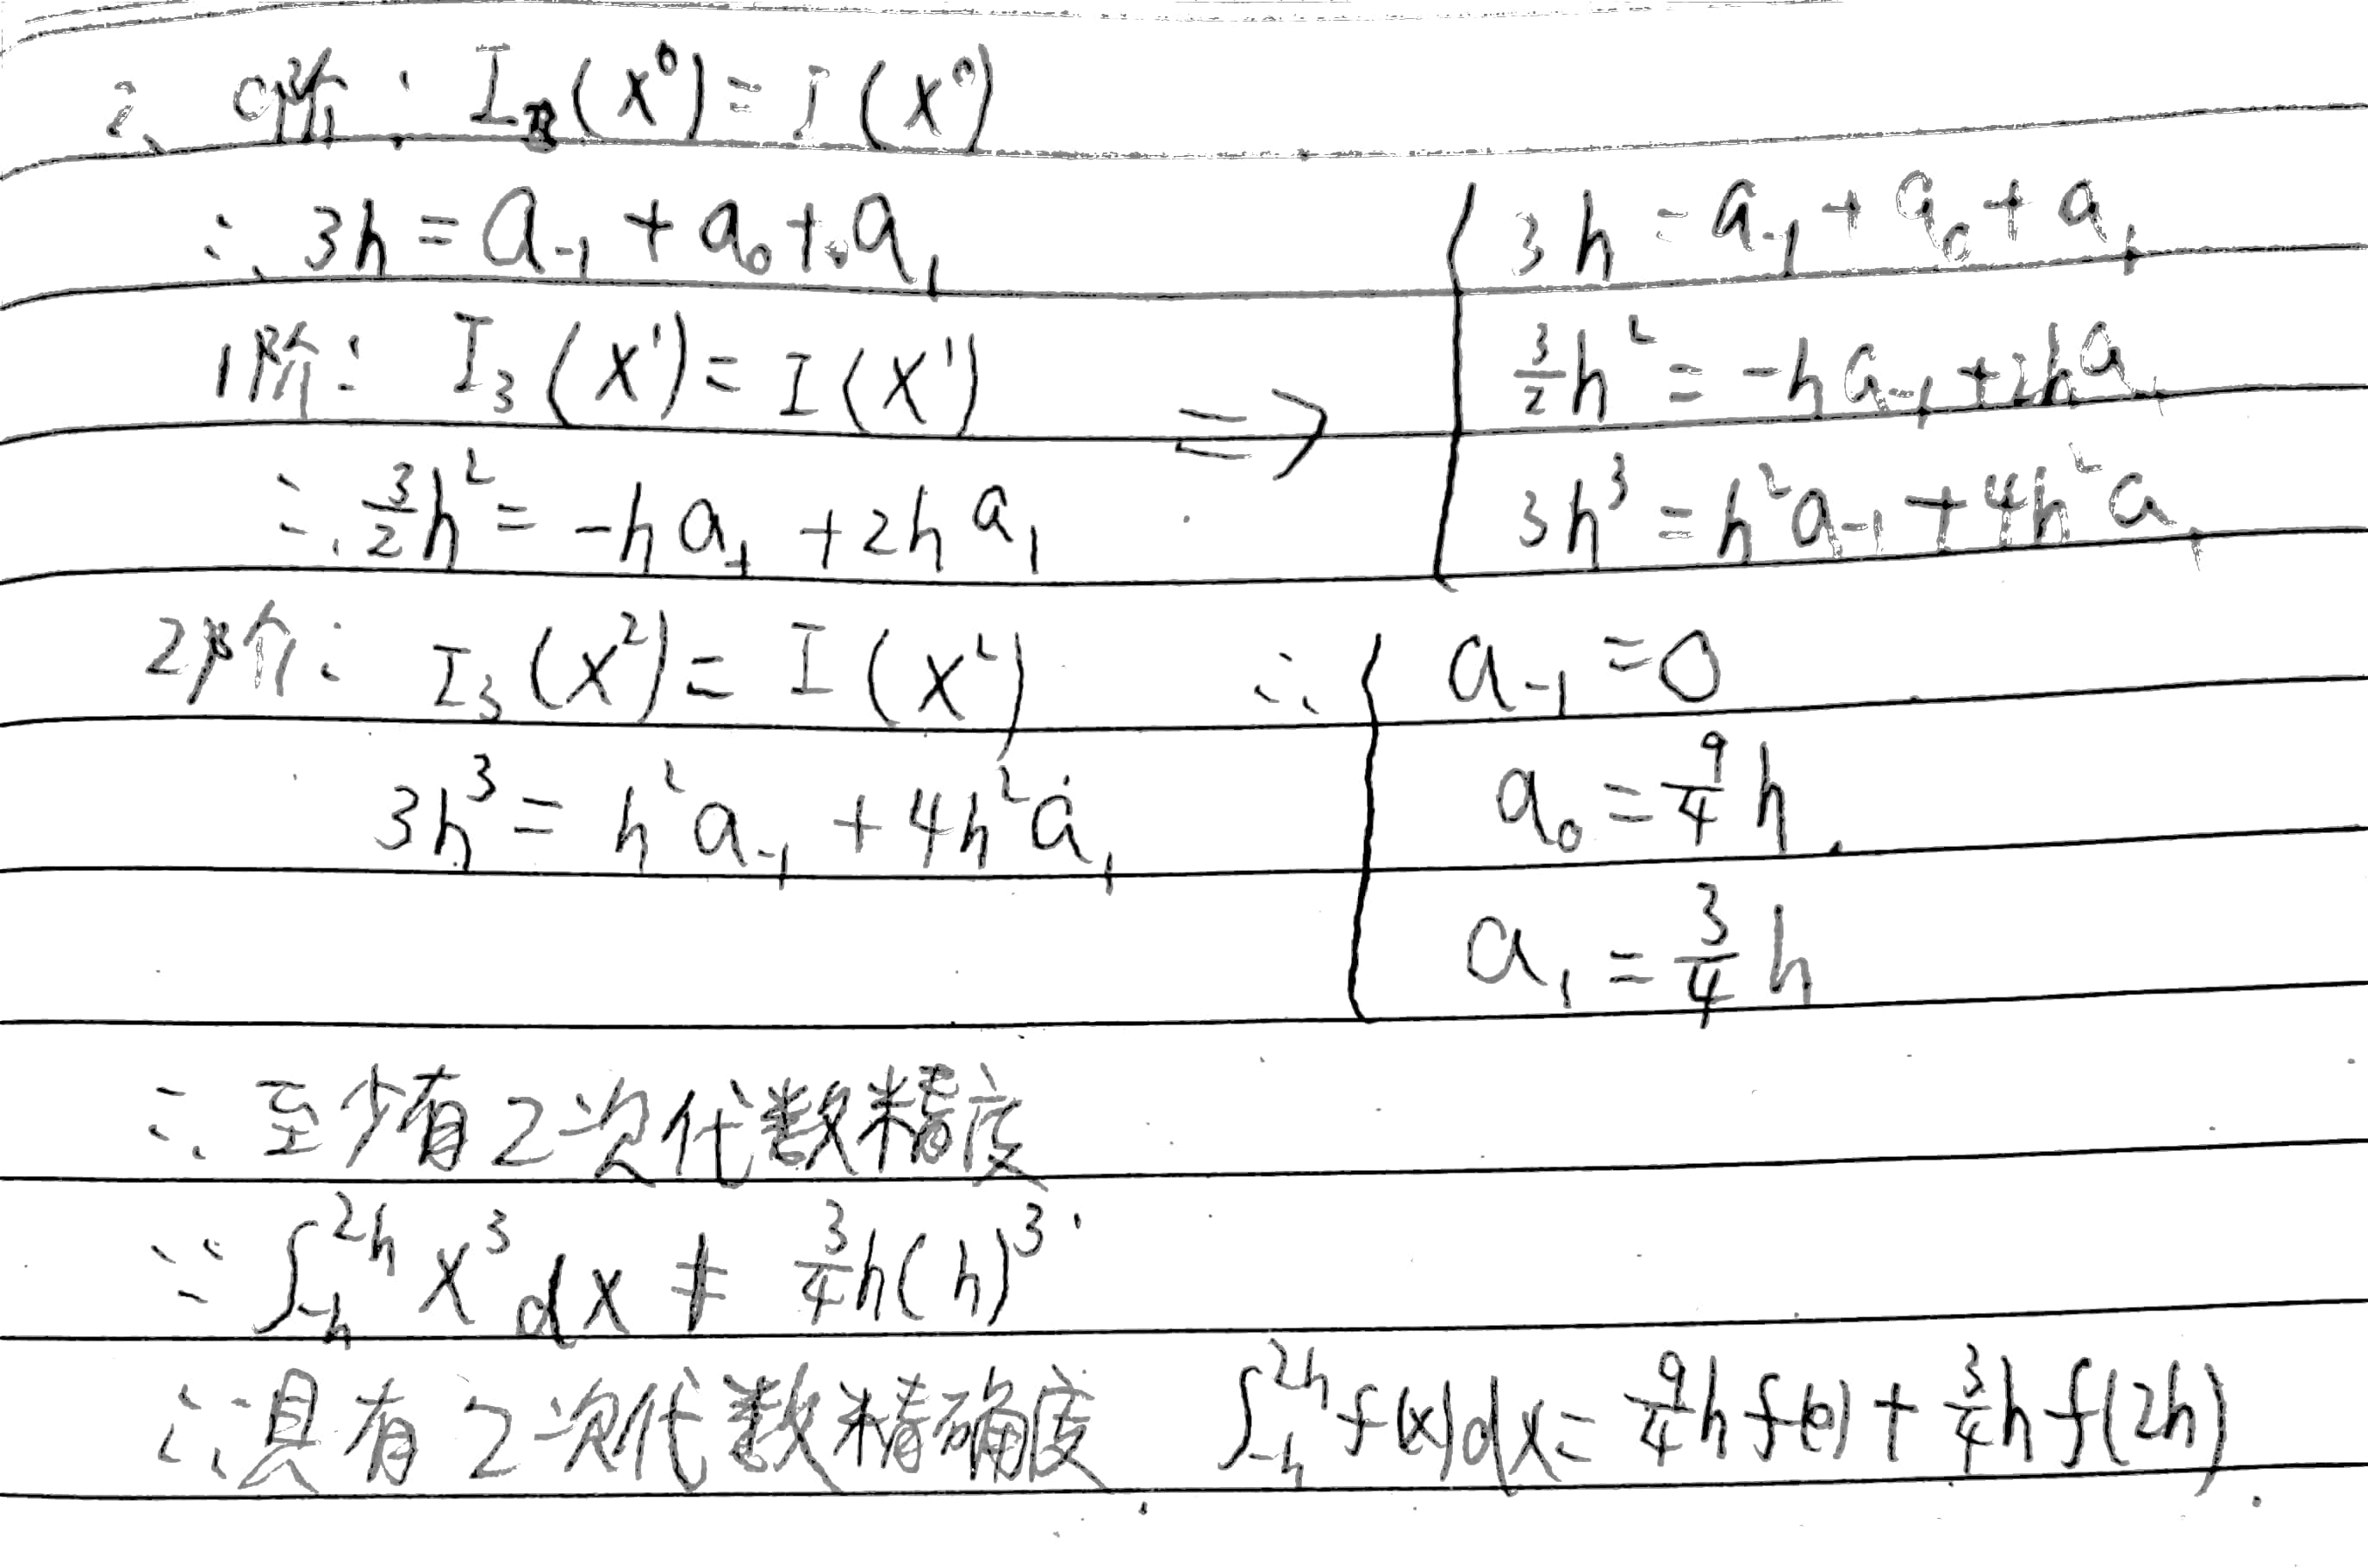 2、 0阶: I₃(x⁰) = I(x⁰)
∴ 3h = a₋₁ + a₀ + a₁
1阶: I₃(x¹) = I(x¹)
∴ 3/2 h² = -ha₋₁ + 2ha₁
2阶: I₃(x²) = I(x²)
3h³ = h²a₋₁ + 4h²a₁
⇒ { 3h = a₋₁ + a₀ + a₁
3/2 h² = -ha₋₁ + 2ha₁
3h³ = h²a₋₁ + 4h²a₁
∴ { a₋₁ = 0
a₀ = 9/4 h
a₁ = 3/4 h
∴ 至少有2次代数精度
∵ ∫₋ₕ²ʰ x³dx ≠ 3/4 h(h)³
∴ 具有2次代数精确度. ∫₋ₕ²ʰ f(x)dx = 9/4 hf(0) + 3/4 hf(2h).